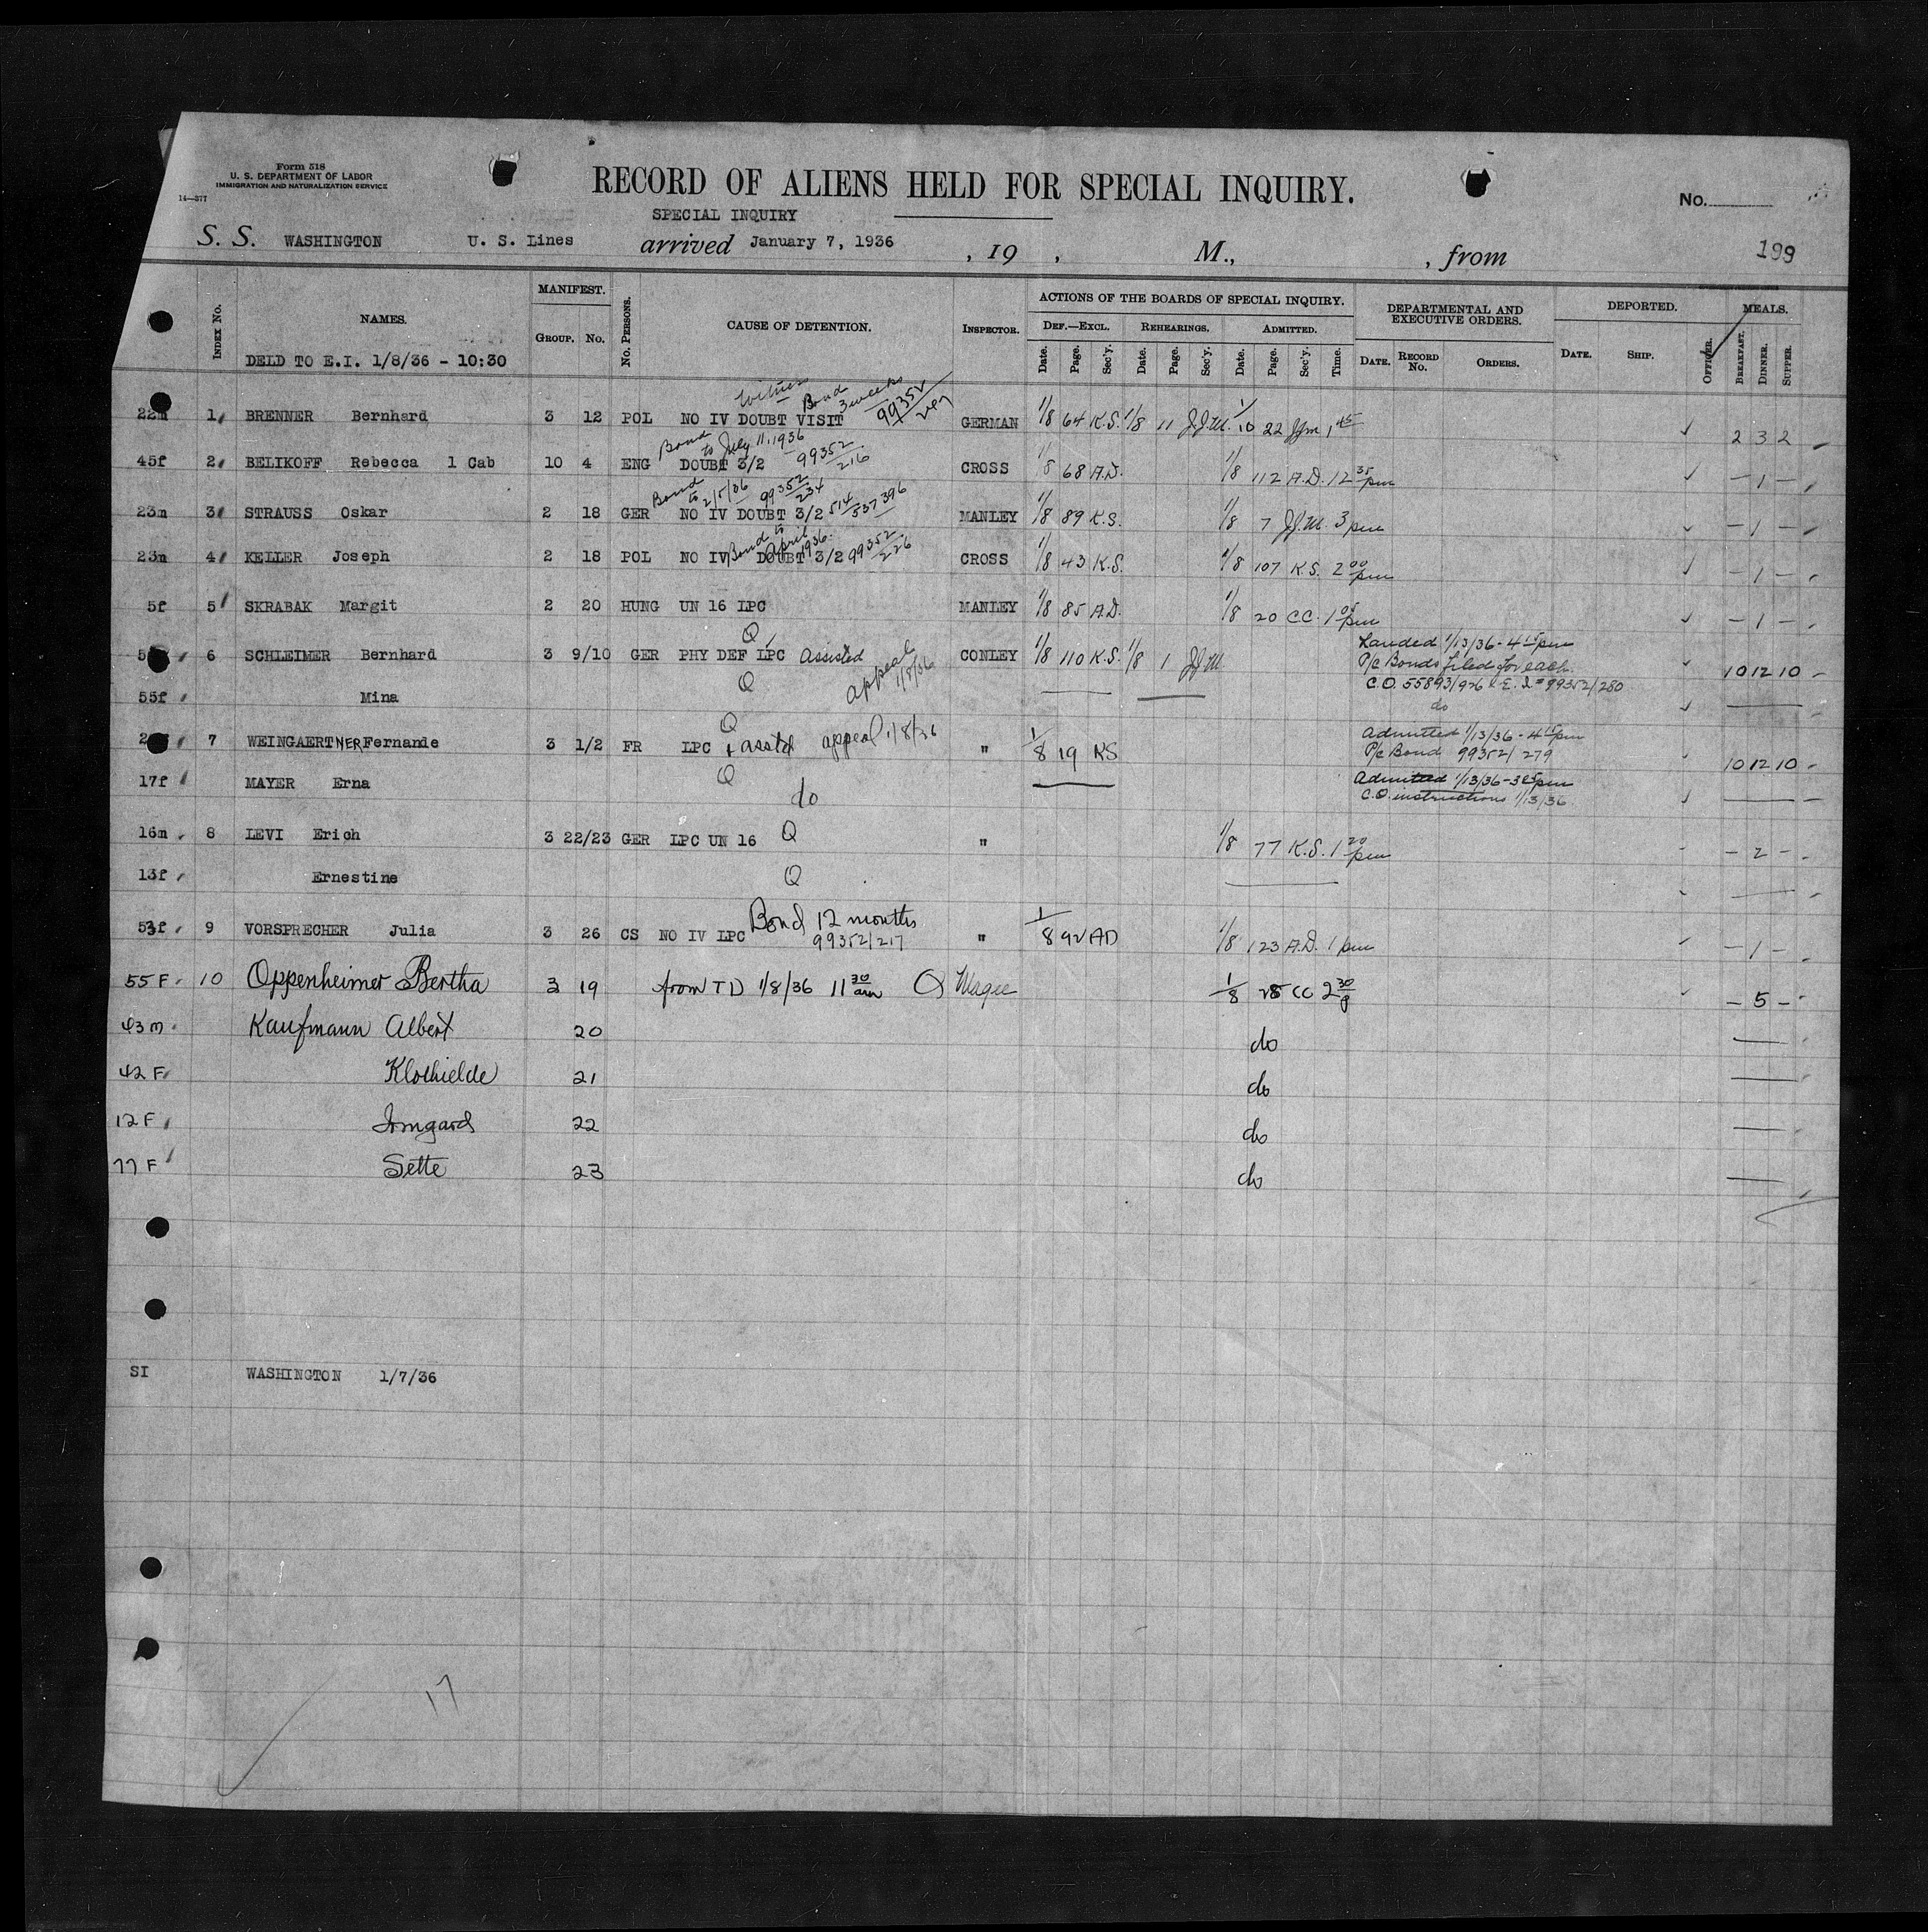 Form 518
U. S. DEPARTMENT OF LABOR
IMMIGRATION AND NATURALIZATION SERVICE
14—377
RECORD OF ALIENS HELD FOR SPECIAL INQUIRY.
No.
SPECIAL INQUIRY
S. S. WASHINGTON U. S. Lines arrived January 7, 1936 , 19 , M., , from 199
INDEX No. NAMES. MANIFEST. GROUP. No. No. PERSONS. CAUSE OF DETENTION. INSPECTOR. ACTIONS OF THE BOARDS OF SPECIAL INQUIRY. DEPARTMENTAL AND EXECUTIVE ORDERS. DEPORTED. MEALS.
DEF.—EXCL. REHEARINGS. ADMITTED.
Date. Page. Sec'y. Date. Page. Sec'y. Date. Page. Sec'y. Time. DATE. RECORD No. ORDERS. DATE. SHIP. OFFICER. BREAKFAST. DINNER. SUPPER.
DELD TO E.I. 1/8/36 - 10:30
Witness Bond 3 weeks 99352
22m 1 BRENNER Bernhard 3 12 POL NO IV DOUBT VISIT GERMAN 1/8 64 K.S. 1/8 11 J.J.M. 1/10 22 JJM 1 45 2 3 2
Bond to July 11, 1936 99352/216
45f 2 BELIKOFF Rebecca 1 Cab 10 4 ENG DOUBT 3/2 CROSS 1/8 68 A.D. 1/8 112 A.D. 12 35 pm – 1 –
Bond to 2/5/36 99352/234 514/337 396
23m 3 STRAUSS Oskar 2 18 GER NO IV DOUBT 3/2 MANLEY 1/8 89 K.S. 1/8 7 J.J.M. 3 pm – 1 –
Bond to April 1936. 99352/226
23m 4 KELLER Joseph 2 18 POL NO IV DOUBT 3/2 CROSS 1/8 43 K.S. 1/8 107 K.S. 2 00 pm – 1 –
5f 5 SKRABAK Margit 2 20 HUNG UN 16 LPC MANLEY 1/8 85 A.D. 1/8 20 CC. 1 05 pm – 1 –
Q Landed 1/13/36 - 4 15 pm
6 SCHLEIMER Bernhard 3 9/10 GER PHY DEF LPC Assisted appeal 1/8/36 CONLEY 1/8 110 K.S. 1/8 1 J.J.M. P/c Bonds filed for each. 10 12 10
Q C.O. 55893/926 & E.I.# 99352/280
55f Mina do
Q Admitted 1/13/36 - 4 15 pm
7 WEINGAERTNER Fernande 3 1/2 FR LPC + asstd appeal 1/8/36 " 1/8 19 KS P/c Bond 99352/279 10 12 10
Q Admitted 1/13/36 - 3 05 pm
17f MAYER Erna do C.O. instructions 1/13/36
16m 8 LEVI Erich 3 22/23 GER LPC UN 16 Q " 1/8 77 K.S. 1 20 pm – 2 –
13f Ernestine Q
Bond 12 months
53f 9 VORSPRECHER Julia 3 26 CS NO IV LPC 99352/217 " 1/8 92 AD 1/8 123 A.D. 1 pm – 1 –
55 F 10 Oppenheimer Bertha 3 19 from TD 1/8/36 11 30 am Q Magee 1/8 25 CC 2 30 p – 5 –
43 m Kaufmann Albert 20 do
42 F Klothielde 21 do
12 F Irmgard 22 do
77 F Sette 23 do
SI WASHINGTON 1/7/36
17